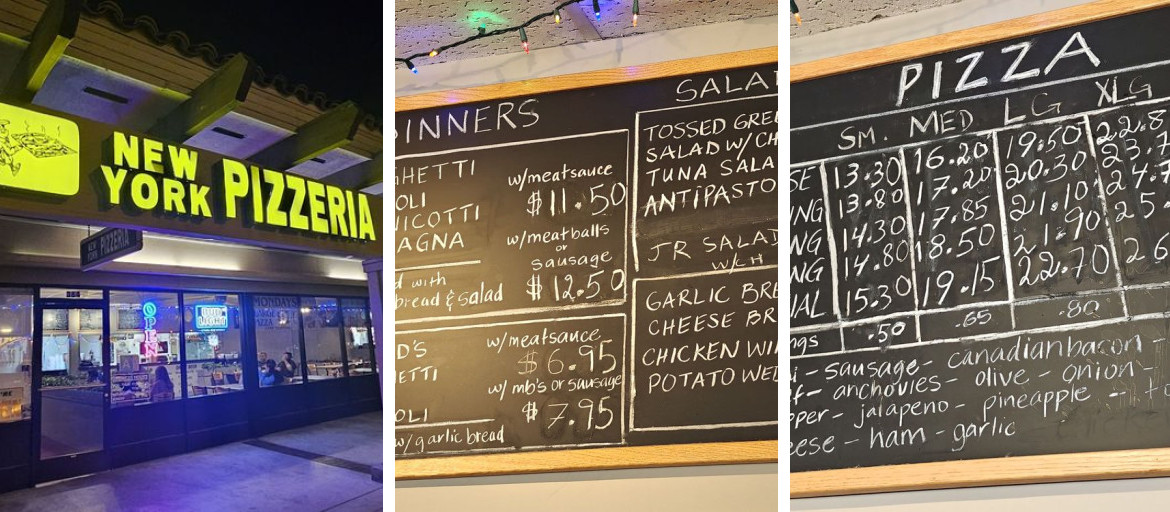 NEW
YORK PIZZERIA
NEW
YORK PIZZERIA
OPEN
BUD
LIGHT
MONDAYS
INNERS
GHETTI
OLI
NICOTTI
AGNA
w/meatsauce
$11.50
w/meatballs
or
sausage
$12.50
d with
bread & salad
D'S
ETTI
OLI
w/meatsauce
$6.95
w/mb's or sausage
$7.95
w/garlic bread
SALAD
TOSSED GREE
SALAD W/CH
TUNA SALA
ANTIPASTO
JR SALAD
W/CH
GARLIC BRE
CHEESE BR
CHICKEN WIN
POTATO WED
PIZZA
SM. MED LG XLG
SE 13.30 16.20 19.50 22.8
ING 13.80 17.20 20.30 23.7
NG 14.30 17.85 21.10 24.7
NG 14.80 18.50 21.90 25.
IAL 15.30 19.15 22.70 26
ngs .50 .65 .80
i - sausage - canadian bacon -
f - anchovies - olive - onion -
pper - jalapeno - pineapple -
eese - ham - garlic